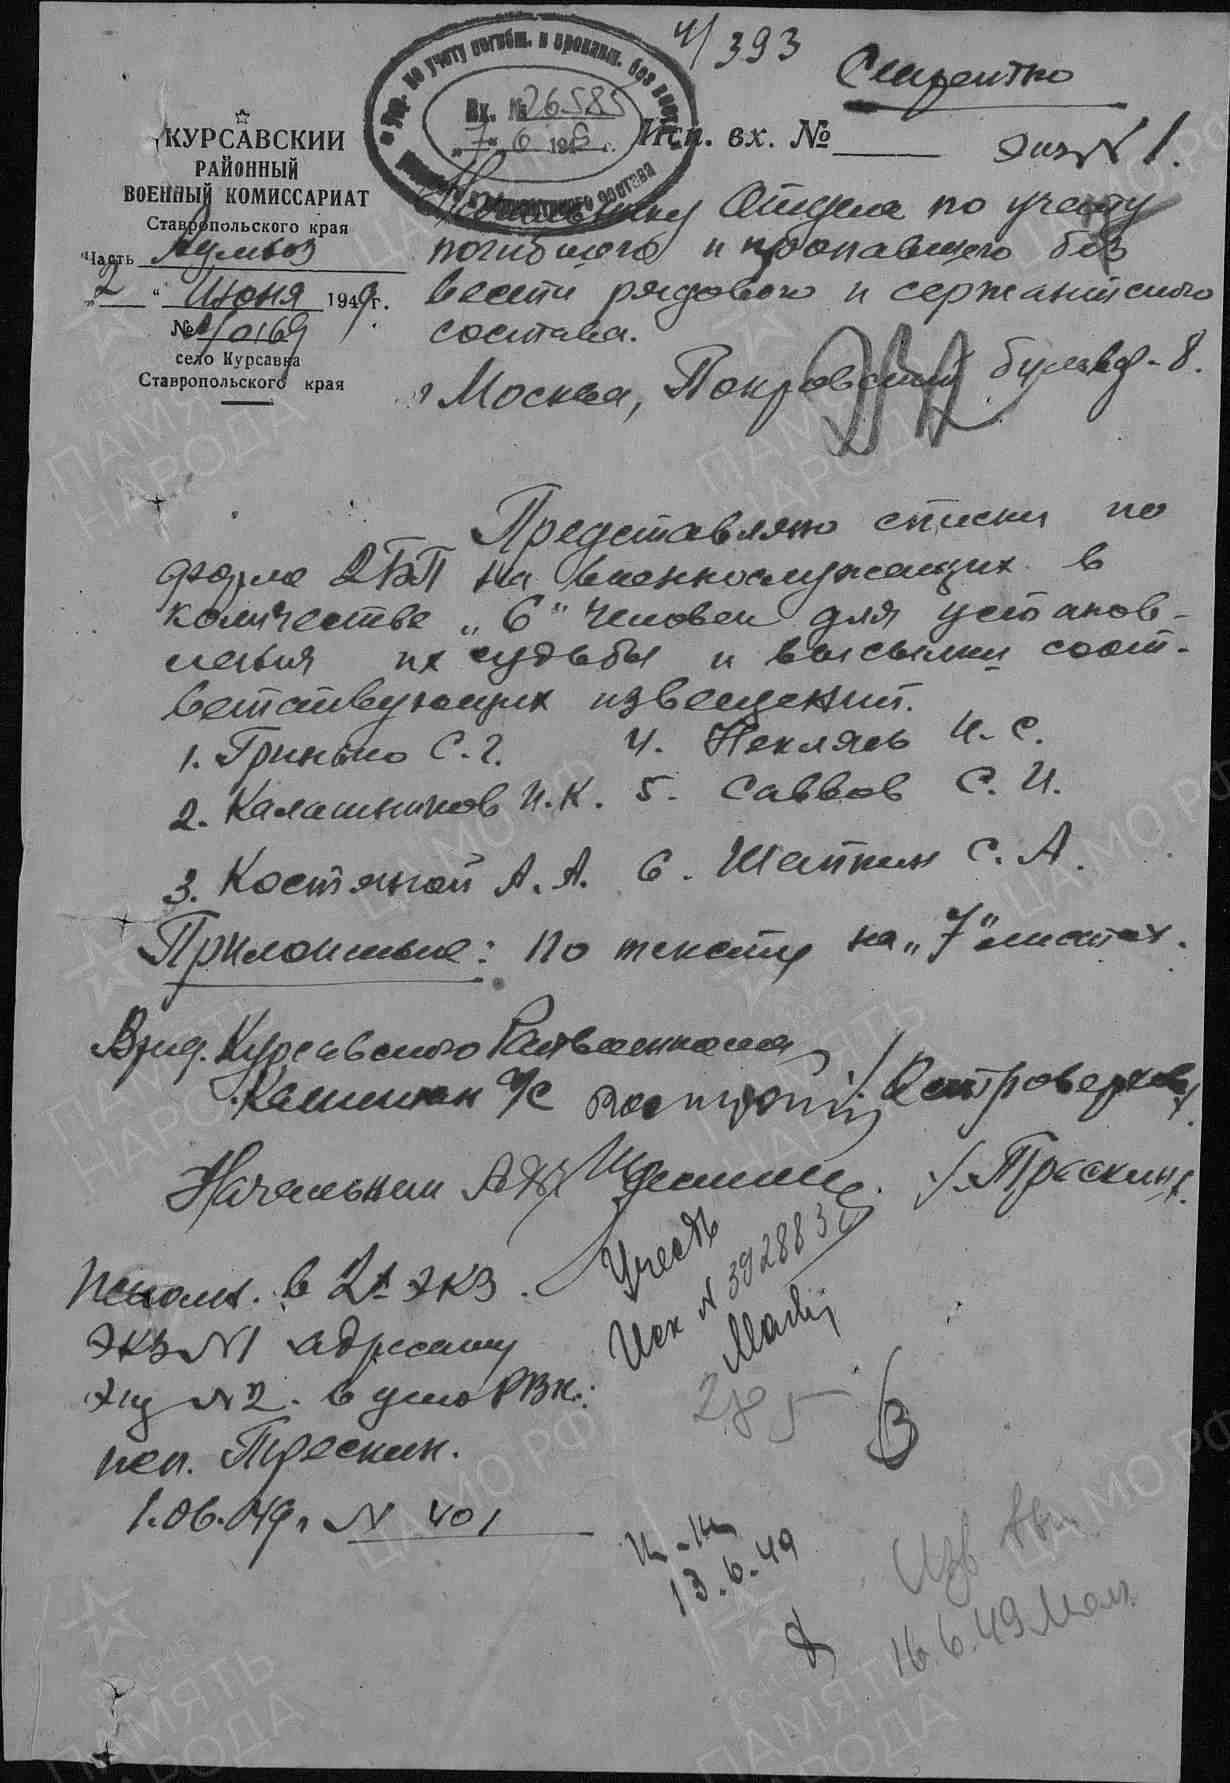 4/393
Секретно
Экз № 1.
КУРСАВСКИЙ
РАЙОННЫЙ
ВОЕННЫЙ КОМИССАРИАТ
Ставропольского края
Часть
„2“ Июня 1949 г.
№ 4/0169
село Курсавка
Ставропольского края
по учету погибш. и пропавш. без вест.
Вх. № 26585
„7“ 6 194 г.
сержантского состава
Исп. вх. №
Начальнику Отдела по учету
погибшего и пропавшего без
вести рядового и сержантского
состава.
г Москва, Покровский бульвар-8.
Представляю списки по
форме 2БП на военнослужащих в
количестве „6“ человек для установ-
ления их судьбы и высылки соот-
ветствующих извещений.
1. Гринько С. Г. 4. Некляев И. С.
2. Калашников И. К. 5. Саввов С. И.
3. Костяной А. А. 6. Шапкин С. А.
Приложение: по тексту на „7“ листах.
Врид. Курсавского Райвоенкома
Капитан а/с /Островерхов/
Начальник /Трескин/
Исполн. в 2х экз.
экз №1 адресату
экз №2. в дело РВК.
исп. Трескин.
1.06.49г № 401
Учесть
Исх N 392883
13.6.49
Изв
16.6.49
ПАМЯТЬ НАРОДА
ЦАМО.РФ